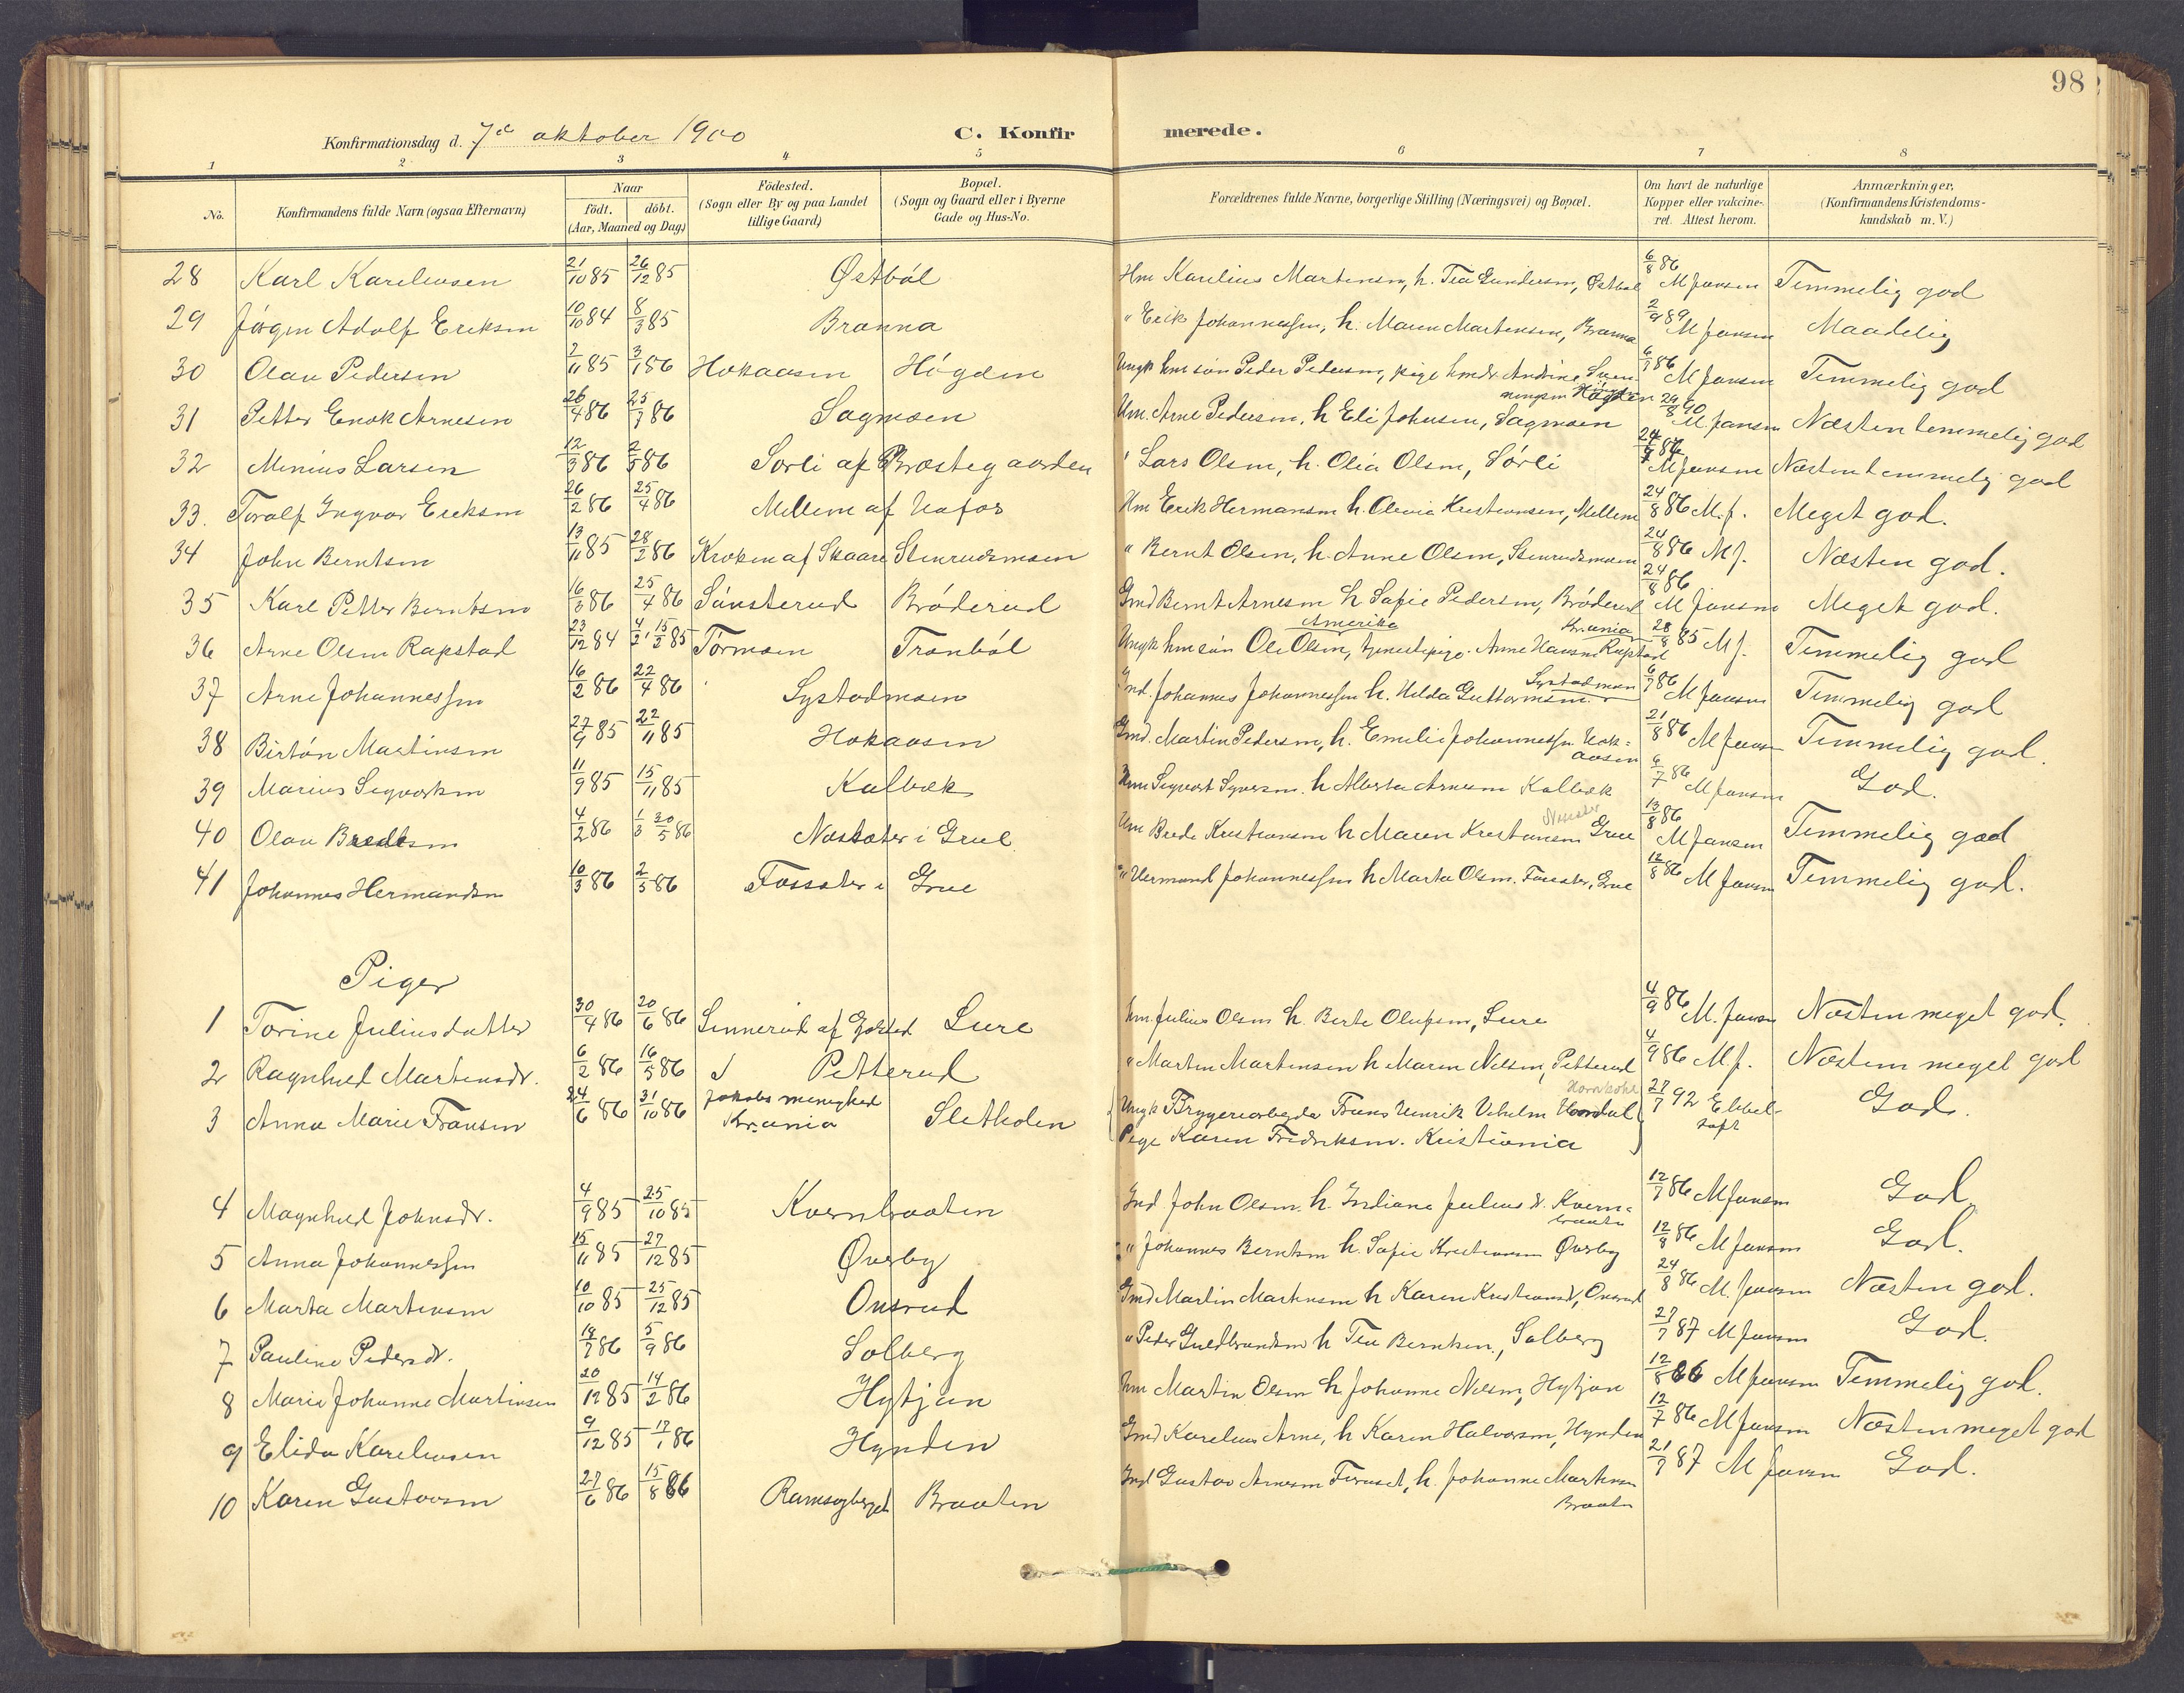 98
Konfirmationsdag d. 7de oktober 1900
C. Konfirmerede.
1 2 3 4 5 6 7 8
No.
Konfirmandens fulde Navn (ogsaa Efternavn)
Naar
födt. döbt.
(Aar, Maaned og Dag)
Födested.
(Sogn eller By og paa Landet
tillige Gaard)
Bopæl.
(Sogn og Gaard eller i Byerne
Gade og Hus-No.
Forældrenes fulde Navne, borgerlige Stilling (Næringsvei) og Bopæl.
Om havt de naturlige
Kopper eller vakcine-
ret. Attest herom.
Anmærkninger,
(Konfirmandens Kristendoms-
kundskab m. V.)
28 Karl Kareliusen 21/10 85 26/12 85 Østböl Hm Karelius Martinsen, h. Tea Gundersen, Østböl 6/8 86 M Jansen Temmelig god
29 Jörgen Adolf Eriksen 10/10 84 8/3 85 Branna " Erik Johannessen, h. Maren Martensen, Branna 2/9 89 M Jansen Maadelig
30 Olau Pedersen 2/11 85 3/1 86 Hokaasen Högden Ungk hm sön Peder Pedersen, pige hmdr Andrine Svenningsen Högden 6/7 86 M Jansen Temmelig god
31 Petter Enok Arnesen 26/4 86 25/7 86 Sagmoen Hm. Arne Pedersen, h Eli Johnsen, Sagmoen 29/8 90 M. Jansen Næsten temmelig god
32 Minius Larsen 12/3 86 2/5 86 Sörli af Præstegaarden " Lars Olsen, h. Olia Olsen, Sörli 24/8 86 M Jansen Næsten temmelig god
33. Toralf Ingvar Eriksen 26/2 86 25/4 86 Mellem af Nafos Hm Erik Hermansen h. Olivia Kristiansen, Mellem 24/8 86 M. J. Meget god.
34 John Berntsen 13/11 85 28/2 86 Kroken af Skaare Stenrudsmoen " Bernt Olsen, h. Anne Olsen, Stenrudsmoen 24/8 86 M J. Næsten god.
35 Karl Petter Berntsen 16/3 86 25/4 86 Sönsterud Bröderud Gmd Bernt Arnesen h Sofie Pedersen, Bröderud 24/8 86 M Jansen Meget god.
36 Arne Olsen Rapstad 23/12 84 4/2, 15/2 85 Tormoen Tranböl Ungk hm sön Ole Olsen, Amerika tjenestepige Anne Hansen Rapstad Kr.ania 28/8 85 M J. Temmelig god
37 Arne Johannessen 16/2 86 22/4 86 Systadmoen Ind. Johannes Johannessen h. Hilda Guttormsen. Systadmoen 6/7 86 M Jansen Temmelig god
38 Birtön Martinsen 27/9 85 22/11 85 Hokaasen Gmd. Martin Pedersen, h. Emilie Johannessen Hokaasen 21/8 86 M Jansen Temmelig god.
39 Marius Sigvartsen 11/9 85 15/11 85 Kalbæk Hm Sigvart Syversen. h Alberta Arnesen Kalbæk 6/7 86 M Jansen God.
40 Olau Bredesen 4/2 86 1/3 30/5 86 Næsæter i Grue Hm Brede Kristiansen h Maren Kristiansen Grue 13/8 86 M Jansen Temmelig god
41 Johannes Hermansen 10/3 86 2/5 86 Fossæter i Grue " Hermand Johannessen h Marta Olsen. Fossæter, Grue 12/8 86 M Jansen Temmelig god.
Piger
1 Torine Juliusdatter 30/4 86 20/6 86 Linnerud af Lure hm. Julius Olsen h. Berte Olufsen, Lure 4/9 86 M. Jansen Næsten meget god.
2 Ragnhild Martinsdr. 6/2 86 16/5 86 Petterud " Martin Martinsen h Maren Nilsen, Petterud 4/9 86 M J. Næsten meget god
3 Anna Marie Fransen 24/6 86 31/10 86 Jakobs menighed Kr.ania Sletholen Ungk Bryggeriarbejder Frans Henrik Vilhelm
Pige Karen Fredriksen. Kristiania 27/7 92 Ebbeltoft God.
4 Magnhild Johnsdr. 4/9 85 25/10 85 Kvernbraaten Ind John Olsen. h. Indiana Julius dr. Kvernbraaten 12/7 86 M Jansen God
5 Anna Johannessen 15/11 85 27/12 85 Øverby " Johannes Berntsen h. Sofie Kristiansen Øverby 12/8 86 M Jansen God.
6 Marta Martinsen 10/10 85 25/12 85 Onsrud Gmd Martin Martinsen h Karen Kristiansdr, Onsrud 24/8 86 M. Jansen Næsten god.
7 Pauline Pedersdr. 19/7 86 5/9 86 Solberg " Peder Guldbrandsen h Tea Berntsen., Solberg 27/7 87 M Jansen God.
8 Marie Johanne Martinsen 20/12 85 14/2 86 Hytjan Hm Martin Olsen h Johanne Nilsen, Hytjan 12/8 86 M Jansen Temmelig god.
9 Elida Kareliusen 9/12 85 17/1 86 Hynden Gmd Karelius Arne, h Karen Halvorsen, Hynden 12/7 86 M Jansen Næsten meget god
10 Karen Gustavsen 27/6 86 15/8 86 Ramsogberget Braaten Ind Gustav Arnesen h. Johanne Martinsen Braaten 21/7 87 M Jansen God.